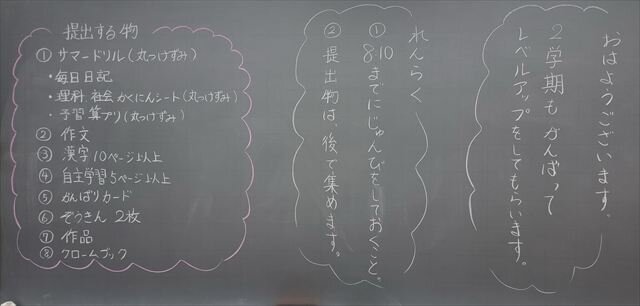 おはようございます。
2学期もがんばって
レベルアップをしてもらいます。
れんらく
① 8:10までにじゅんびをしておくこと。
② 提出物は、後で集めます。
提出する物
① サマードリル(丸つけずみ)
・毎日日記
・理科 社会 かくにんシート(丸つけずみ)
・予習 算プリ(丸つけずみ)
② 作文
③ 漢字10ページ以上
④ 自主学習5ページ以上
⑤ がんばりカード
⑥ ぞうきん 2枚
⑦ 作品
⑧ クロームブック